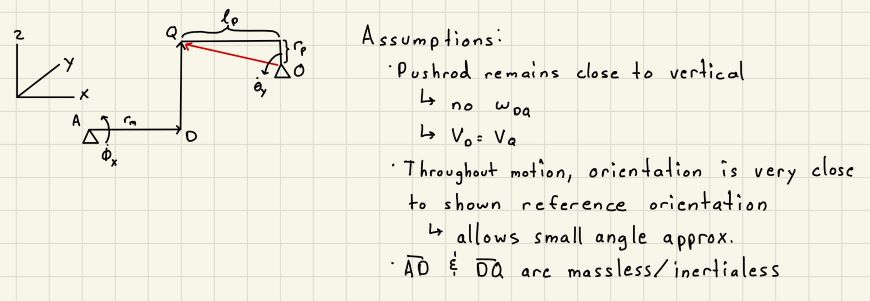 z
y
x
A
r_m
D
Q
l_p
r_p
O
θ̇_y
ϕ̇_x
Assumptions:
· Pushrod remains close to vertical
↳ no ω_DQ
↳ V_D = V_Q
· Throughout motion, orientation is very close
to shown reference orientation
↳ allows small angle approx.
· A̅D̅ & D̅Q̅ are massless/inertialess